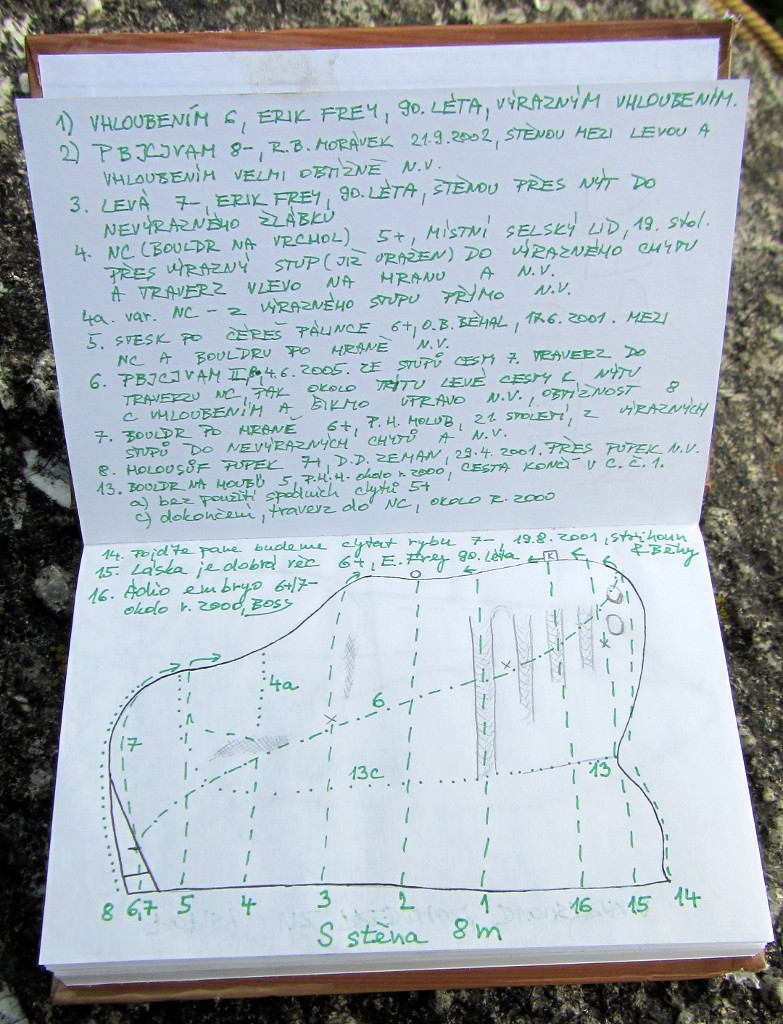 1) VHLOUBENÍM 6, ERIK FREY, 90. LÉTA, VÝRAZNÝM VHLOUBENÍM.
2) PBJCJVAM 8-, R.B. MORÁVEK 21.9.2002, STĚNOU MEZI LEVOU A
VHLOUBENÍM VELMI OBTÍŽNĚ N.V.
3. LEVÁ 7-, ERIK FREY, 90. LÉTA, STĚNOU PŘES NÝT DO
NEVÝRAZNÉHO ŽLÁBKU
4. NC (BOULDR NA VRCHOL) 5+, MÍSTNÍ SELSKÝ LID, 19. STOL.
PŘES VÝRAZNÝ STUP (JIŽ URAŽEN) DO VÝRAZNÉHO CHYTU
A TRAVERZ VLEVO NA HRANU A N.V.
4a. var. NC - Z VÝRAZNÉHO STUPU PŘÍMO N.V.
5. STESK PO ČEREŠ PÁLINCE 6+, O.B. BĚHAL, 17.6.2001. MEZI
NC A BOULDRU PO HRANĚ N.V.
6. PBJCJVAM II, 4.6.2005. ZE STUPŮ CESTY 7. TRAVERZ DO
TRAVERZU NC, PAK OKOLO NÝTU LEVÉ CESTY K NÝTU
C VHLOUBENÍM A ŠIKMO VPRAVO N.V., OBTÍŽNOST 8
7. BOULDR PO HRANĚ 6+, P.H. HOLUB, 21. STOLETÍ, Z VÝRAZNÝCH
STUPŮ DO NEVÝRAZNÝCH CHYTŮ A N.V.
8. HOLOUSŮF PUPEK 7+, D.D. ZEMAN, 29.4.2001. PŘES PUPEK N.V.
13. BOULDR NA HOUBU 5, P.H.H. okolo r. 2000, CESTA KONČÍ V C.Č.1.
a) bez použití spodních chytů 5+
c) dokončení, traverz do NC, OKOLO R. 2000
14. Pojďte pane budeme chytat rybu 7-, 19.8.2001, strihoun
& Běhy
15. Láska je dobrá věc 6+, E. Frey 90. léta
16. Adio embryo 6+/7-
okolo r. 2000, BOSS
K
4a
7
6
13c
13
8 6,7 5 4 3 2 1 16 15 14
S stěna 8m